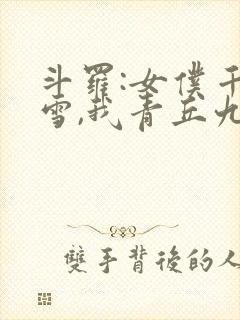 斗羅:女僕千
雪,我青丘九
雙手背後的人